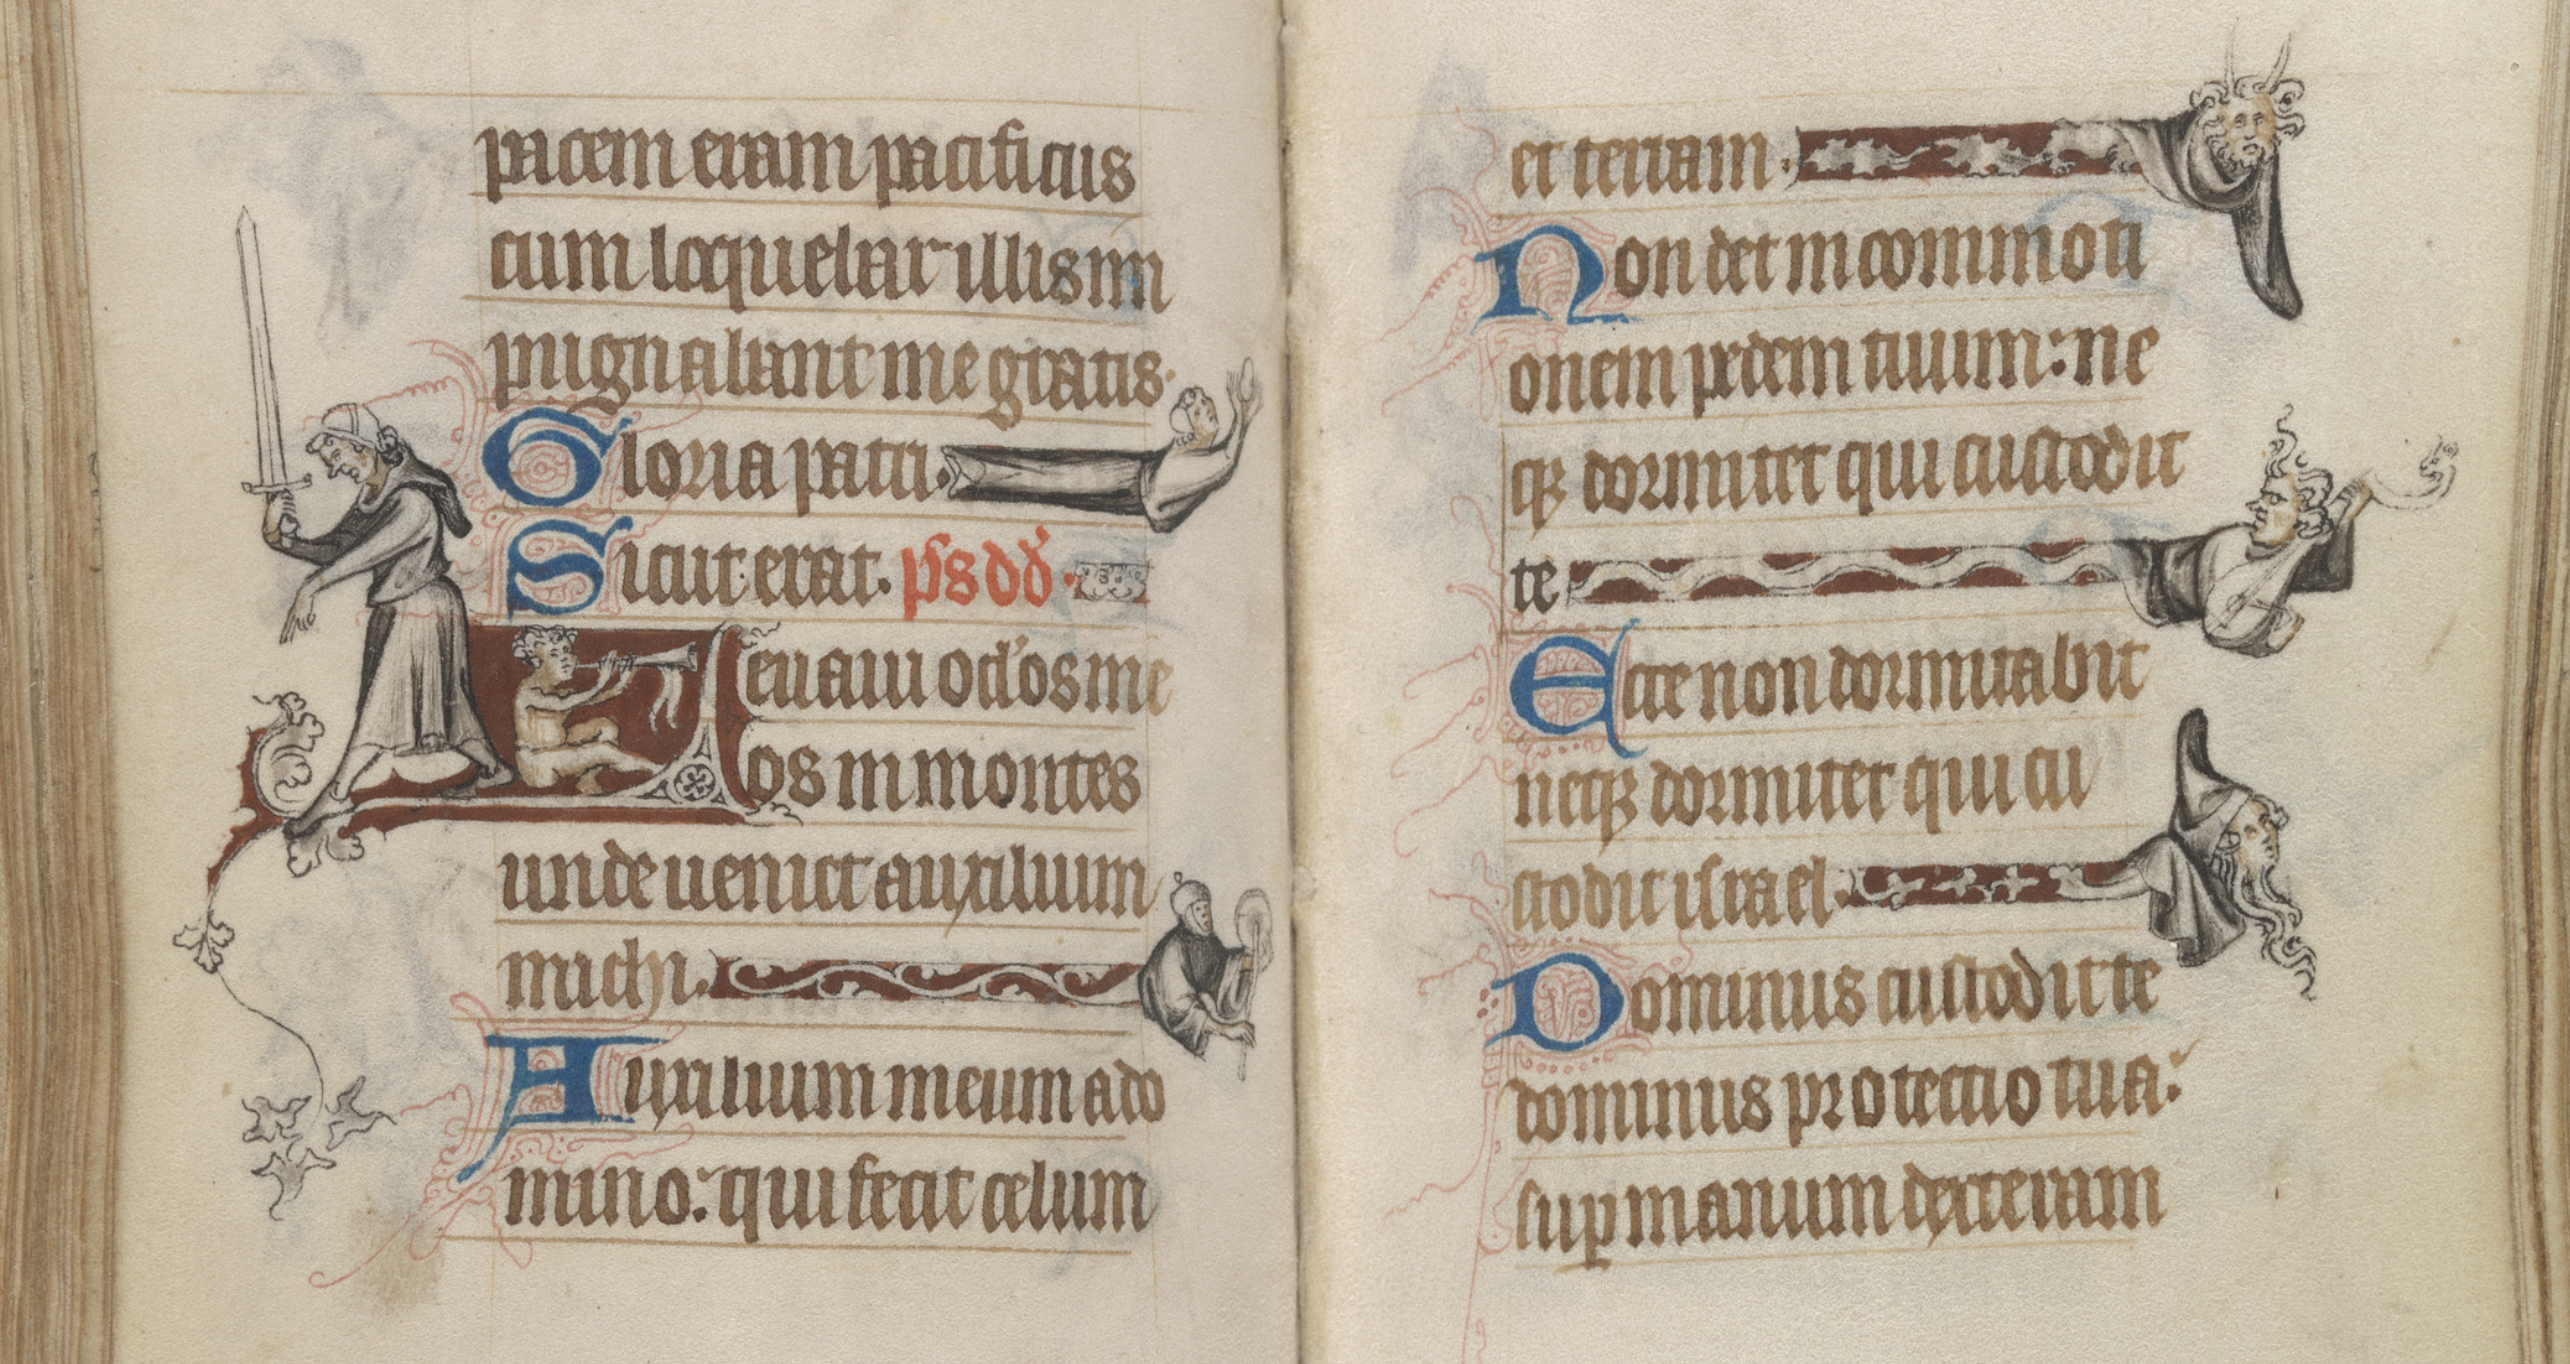 pacem eram pacificus
cum loquebar illis im
pugnabant me gratis.
Gloria patri.
Sicut erat. ps dd̄.
Leuaui oc̄los me
os in montes
unde ueniet auxilium
michi.
Auxilium meum a do
mino: qui fecit celum
et terram.
Non det in commoti
onem pedem tuum: ne
qꝫ dormitet qui custodit
te
Ecce non dormitabit
neqꝫ dormiet qui cu
stodit israel.
Dominus custodit te
dominus protectio tua:
suꝑ manum dexteram